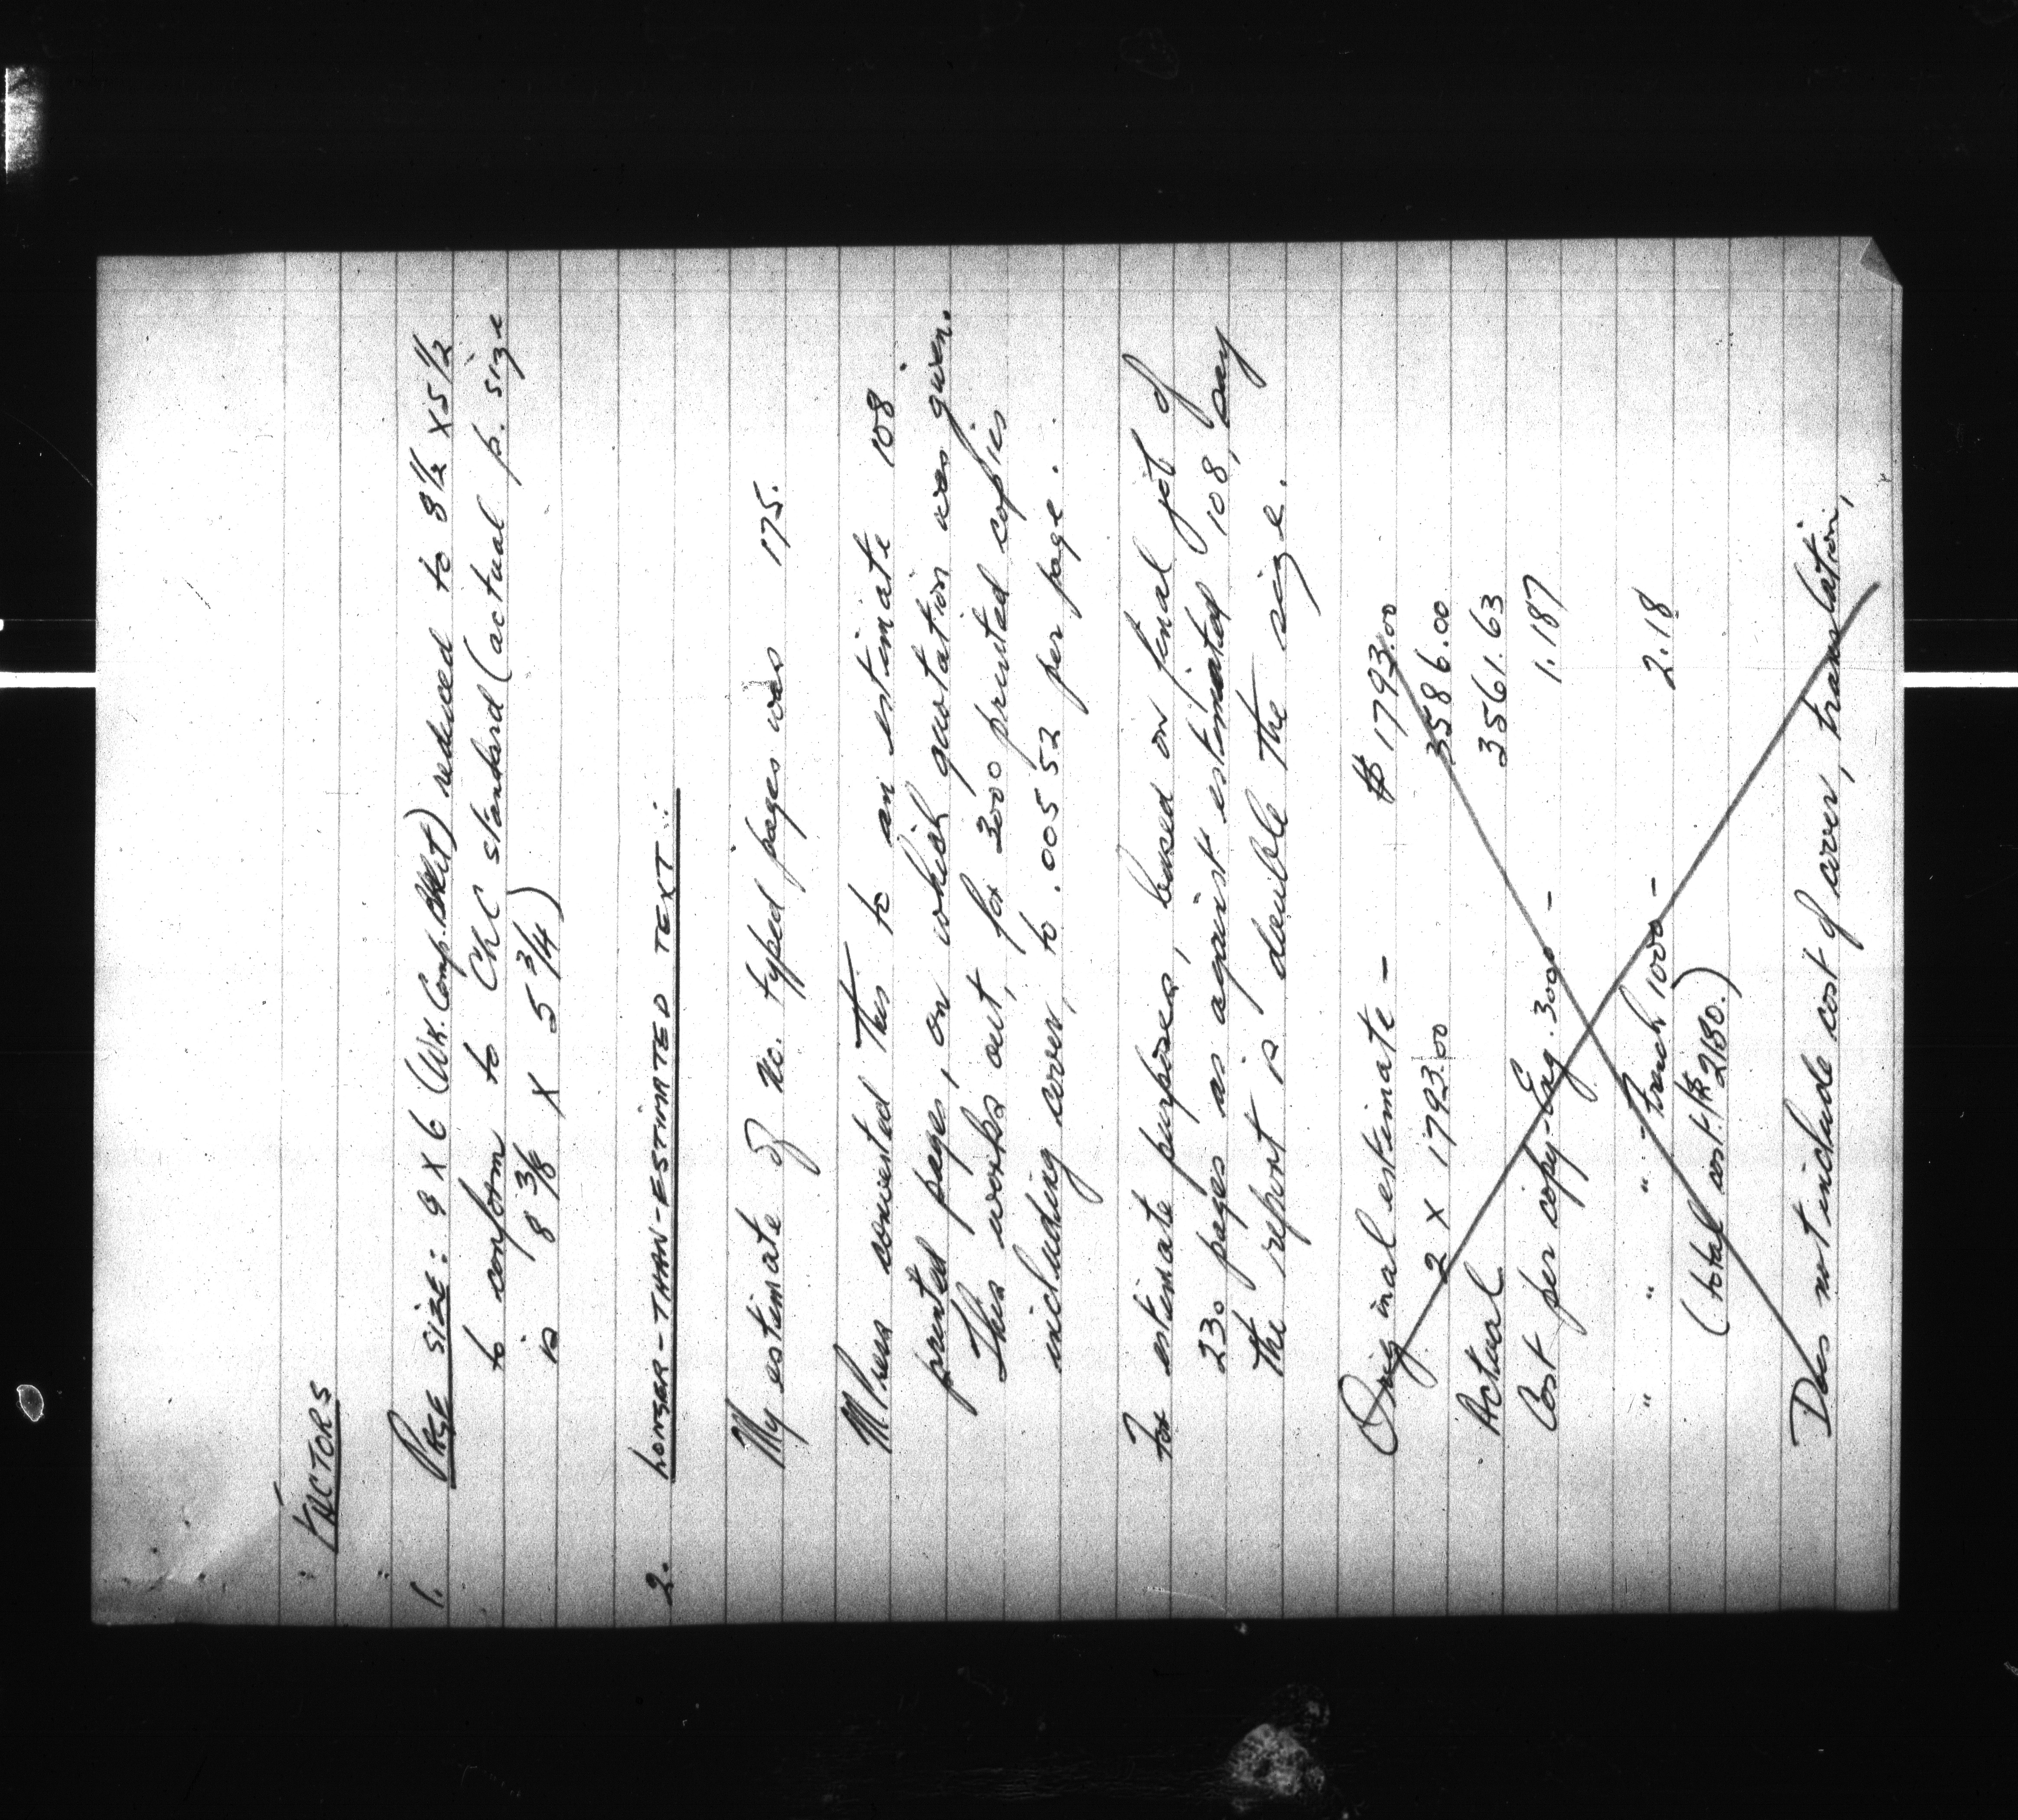 FACTORS
1. PAGE SIZE: 9 X 6 (Wk. Comp. Bklt) reduced to 8 1/2 x 5 1/2
to conform to CLC standard (actual p. size
is 8 3/8 X 5 3/4)
2. LONGER-THAN-ESTIMATED TEXT:
My estimate of no. typed pages was 175.
M. Press converted this to an estimate 108
printed pages, on which quotation was given.
This works out, for 3000 printed copies
including cover, to .00552 per page.
For estimate purposes, based on final job of
230 pages as against estimated 108, say
the report is double the size.
Original estimate - $ 1793.00
2 X 1793.00 3586.00
Actual 3561.63
Cost per copy - Eng. 3000 - 1.187
" " " - French 1000 - 2.18
(total cost $2180.)
Does not include cost of cover, translation,